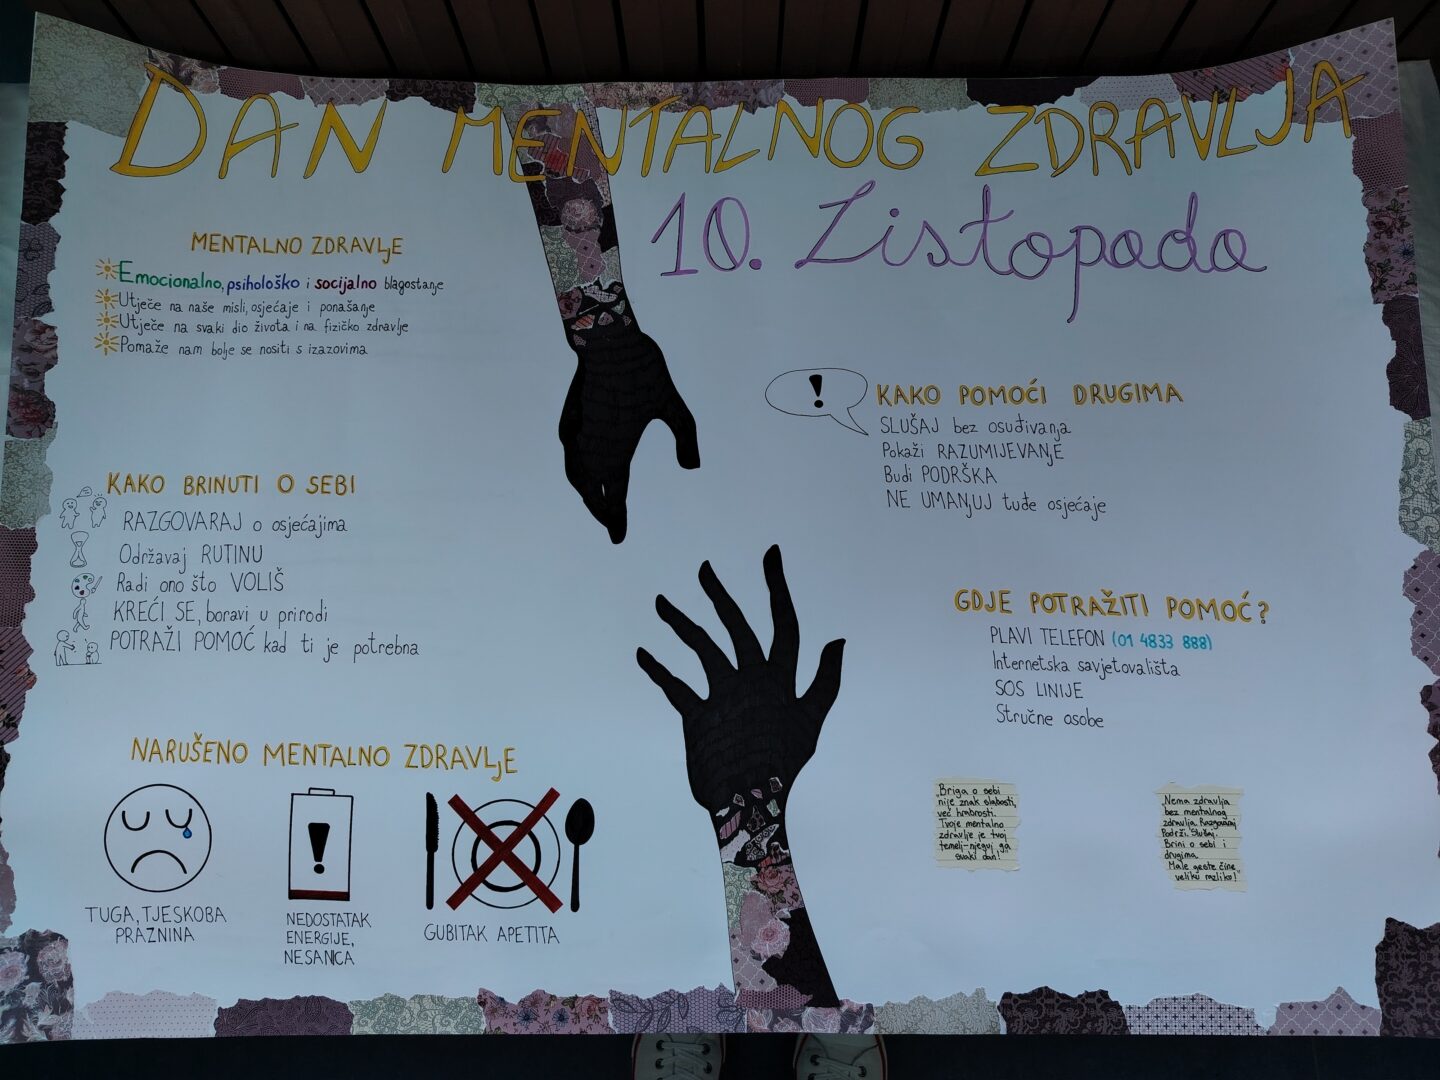 DAN MENTALNOG ZDRAVLJA
10. Listopada
MENTALNO ZDRAVLJE
Emocionalno, psihološko i socijalno blagostanje
Utječe na naše misli, osjećaje i ponašanje
Utječe na svaki dio života i na fizičko zdravlje
Pomaže nam bolje se nositi s izazovima
KAKO BRINUTI O SEBI
RAZGOVARAJ o osjećajima
Održavaj RUTINU
Radi ono što VOLIŠ
KREĆI SE, boravi u prirodi
POTRAŽI POMOĆ kad ti je potrebna
NARUŠENO MENTALNO ZDRAVLJE
TUGA, TJESKOBA
PRAZNINA
NEDOSTATAK
ENERGIJE,
NESANICA
GUBITAK APETITA
KAKO POMOĆI DRUGIMA
SLUŠAJ bez osuđivanja
Pokaži RAZUMIJEVANJE
Budi PODRŠKA
NE UMANJUJ tuđe osjećaje
GDJE POTRAŽITI POMOĆ?
PLAVI TELEFON (01 4833 888)
Internetska savjetovališta
SOS LINIJE
Stručne osobe
"Briga o sebi
nije znak slabosti,
već hrabrosti.
Tvoje mentalno
zdravlje je tvoj
temelj-njeguj ga
svaki dan!"
"Nema zdravlja
bez mentalnog
zdravlja. Razgovaraj
Podrži. Slušaj.
Brini o sebi i
drugima
Male geste čine
veliku razliku!"